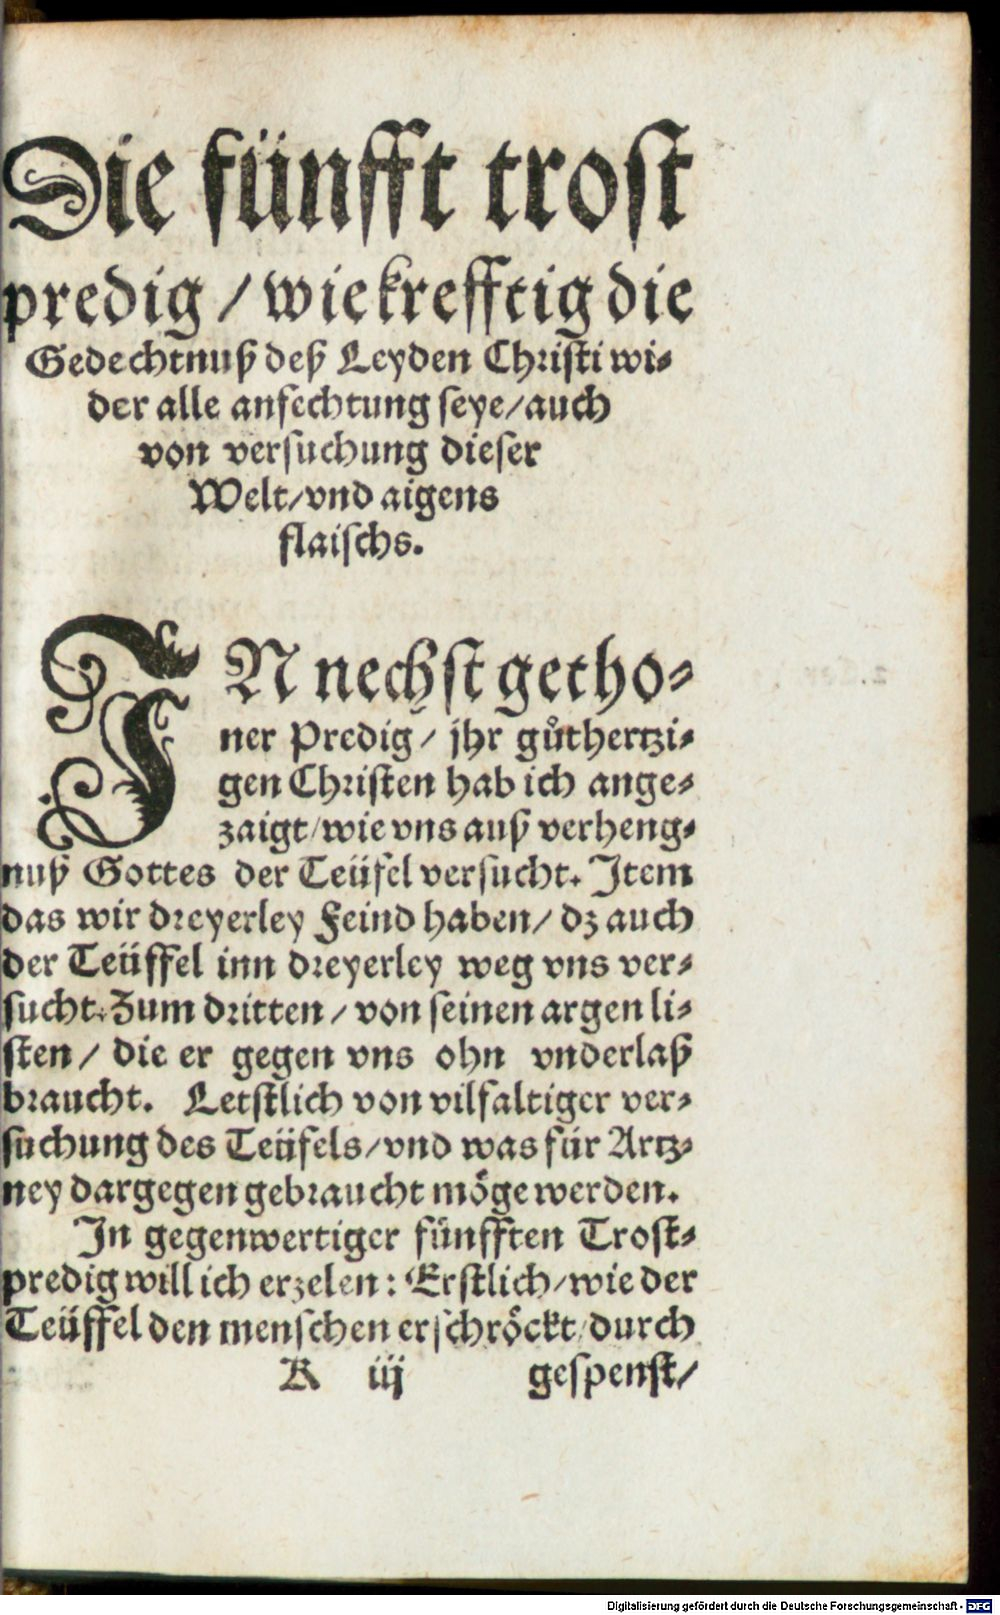 Die fünfft trost
predig / wie krefftig die
Gedechtnuß deß Leyden Christi wi⸗
der alle anfechtung seye/auch
von versuchung dieser
Welt/vnd aigens
flaischs.
IN nechst getho⸗
ner Predig / jhr gůthertzi⸗
gen Christen hab ich ange⸗
zaigt/wie vns auß verheng⸗
nuß Gottes der Teüfel versucht. Item
das wir dreyerley Feind haben/ dz auch
der Teüffel inn dreyerley weg vns ver⸗
sucht. Zum dritten / von seinen argen li⸗
sten / die er gegen vns ohn vnderlaß
braucht. Letstlich von vilfaltiger ver⸗
suchung des Teüfels/vnd was für Artz⸗
ney dargegen gebraucht möge werden.
In gegenwertiger fünfften Trost⸗
predig will ich erzelen: Erstlich/wie der
Teüffel den menschen erschröckt/durch
K iij gespenst/
Digitalisierung gefördert durch die Deutsche Forschungsgemeinschaft - DFG